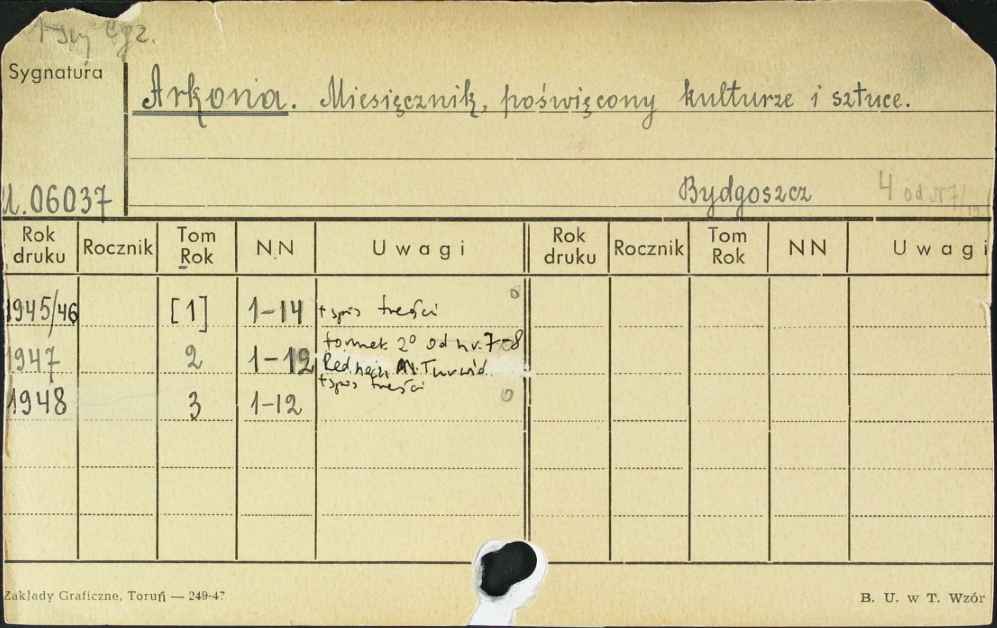 egz.
Sygnatura
Arkona. Miesięcznik, poświęcony kulturze i sztuce.
U.06037
Bydgoszcz 4° od N 7/
Rok druku Rocznik Tom Rok N.N Uwagi Rok druku Rocznik Tom Rok NN Uwagi
1945/46 [1] 1-14 + spis treści
format 2° od nr. 7-8
1947 2 1-12 Red. nacz. M. Turwid
+ spis treści
1948 3 1-12
Zakłady Graficzne, Toruń — 249-47
B. U. w T. Wzór